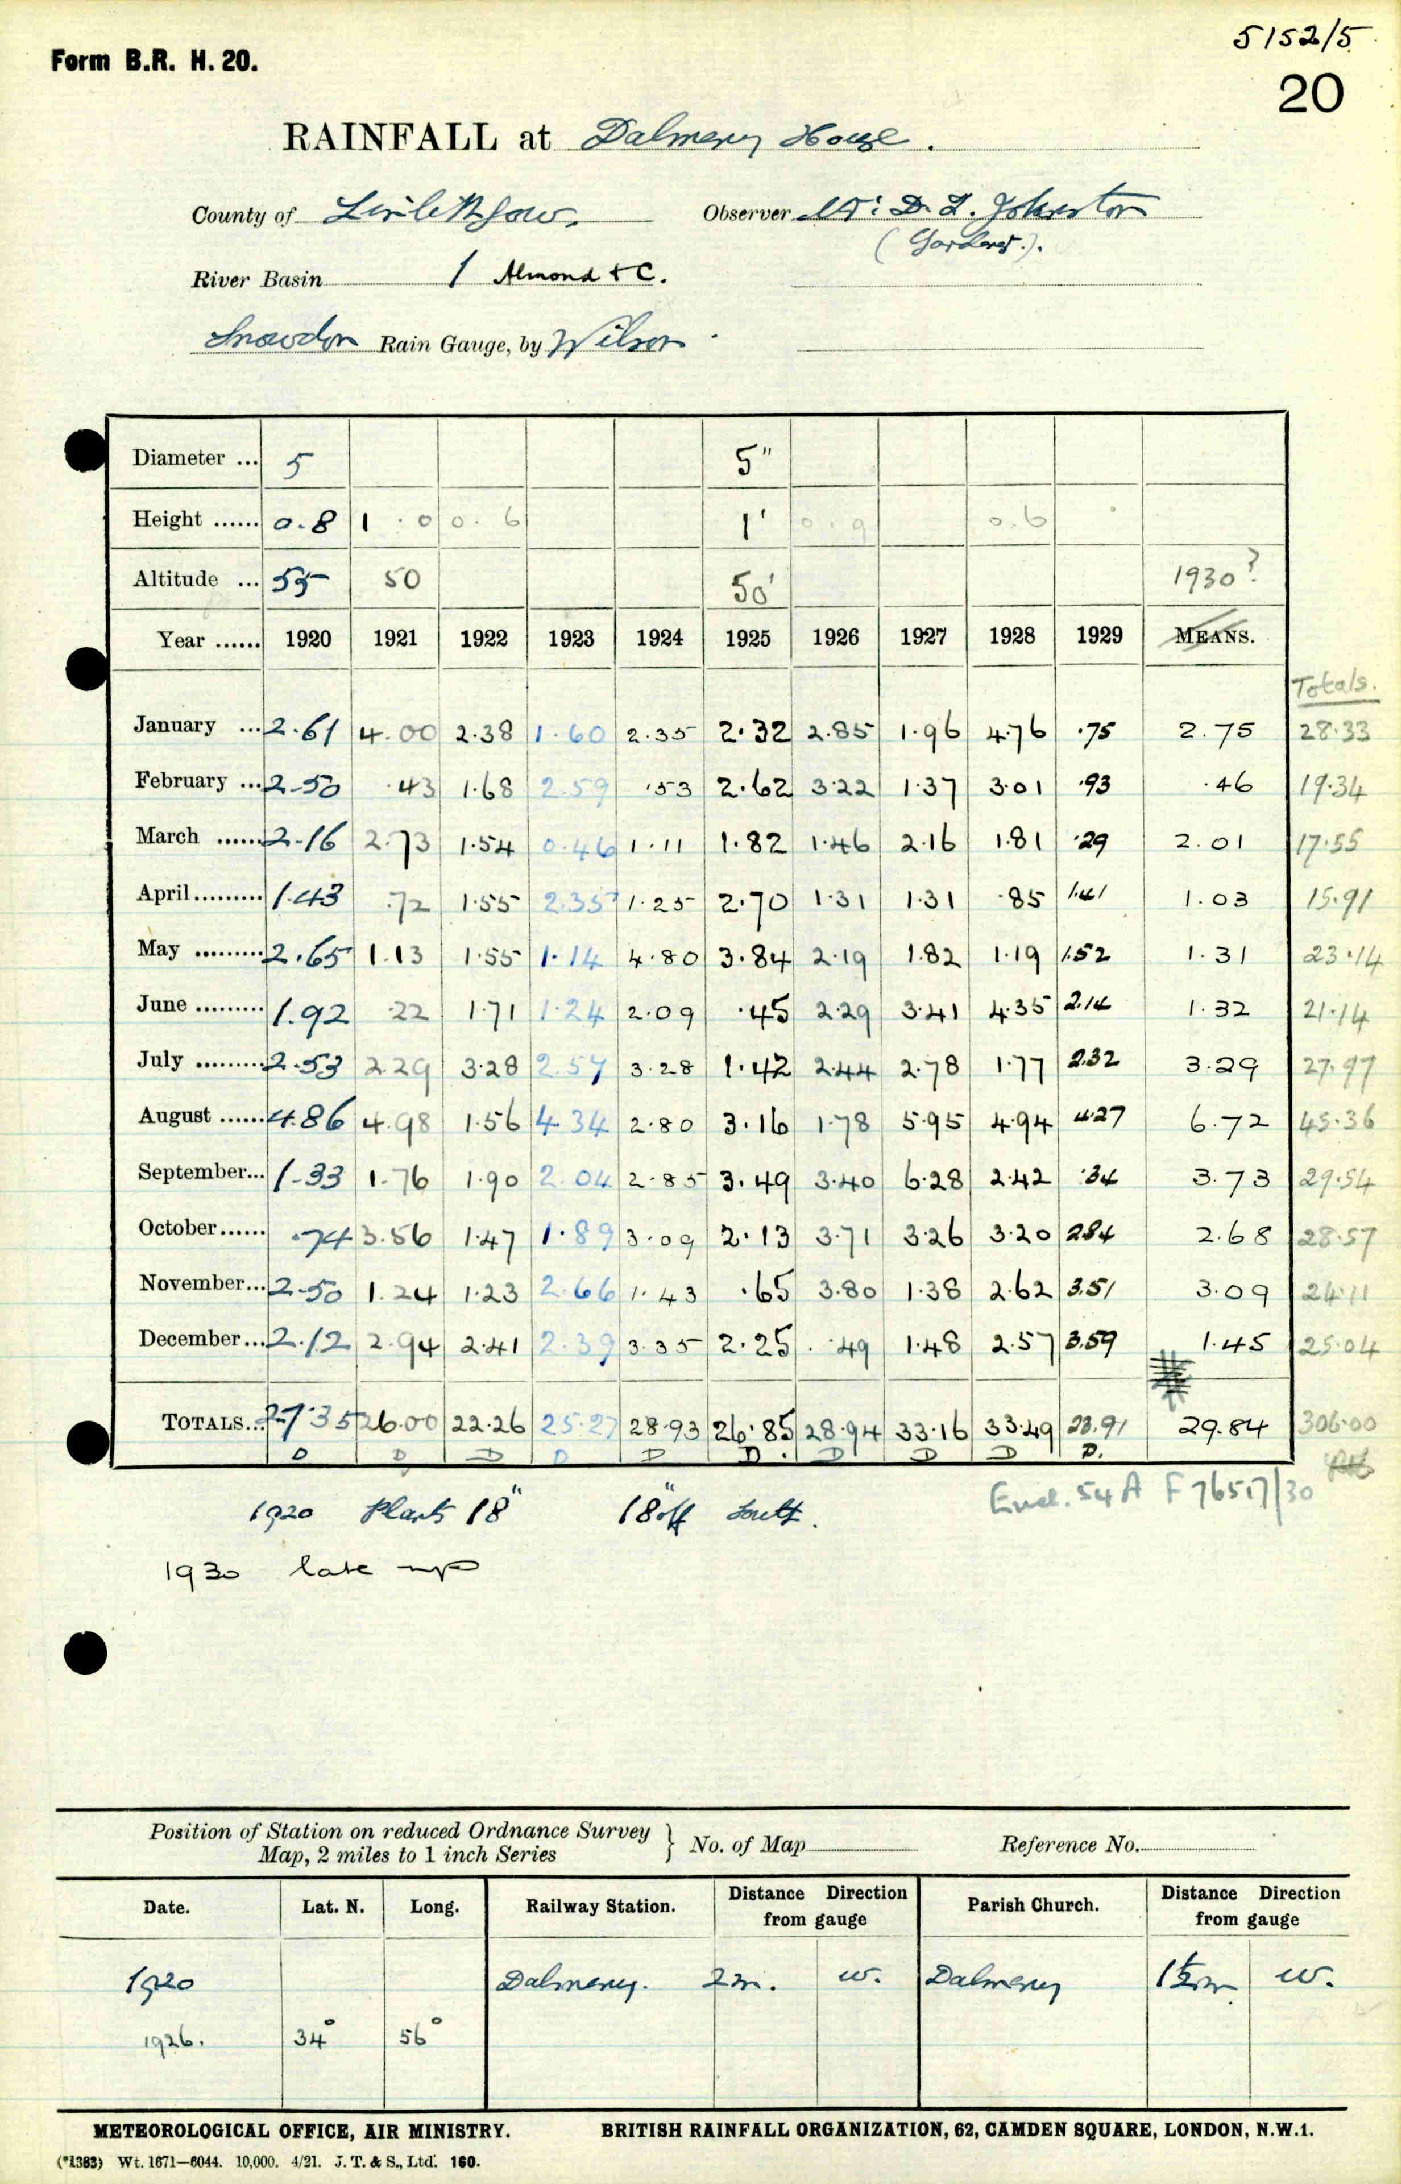 5152/5
Form B.R. H. 20.
20
RAINFALL at Dalmeny House.
County of Linlithgow. Observer Mr: D. L. Johnston
(Gardener.).
River Basin / Almond & C.
Snowdon Rain Gauge, by Wilson
Diameter ... 5 5"
Height ...... 0.8 1.0 0.6 1' 0.9 0.6
Altitude ... 55 50 50' 1930?
Year ...... 1920 1921 1922 1923 1924 1925 1926 1927 1928 1929 MEANS.
Totals.
January ... 2.61 4.00 2.38 1.60 2.35 2.32 2.85 1.96 4.76 .75 2.75 28.33
February ... 2.50 .43 1.68 2.59 .53 2.62 3.22 1.37 3.01 .93 .46 19.34
March ...... 2.16 2.73 1.54 0.46 1.11 1.82 1.46 2.16 1.81 .29 2.01 17.55
April ......... 1.43 .72 1.55 2.35 1.25 2.70 1.31 1.31 .85 1.41 1.03 15.91
May ......... 2.65 1.13 1.55 1.14 4.80 3.84 2.19 1.82 1.19 1.52 1.31 23.14
June ......... 1.92 .22 1.71 1.24 2.09 .45 2.29 3.41 4.35 2.14 1.32 21.14
July ......... 2.53 2.29 3.28 2.57 3.28 1.42 2.44 2.78 1.77 2.32 3.29 27.97
August ...... 4.86 4.98 1.56 4.34 2.80 3.16 1.78 5.95 4.94 4.27 6.72 45.36
September... 1.33 1.76 1.90 2.04 2.85 3.49 3.40 6.28 2.42 .34 3.73 29.54
October...... .74 3.56 1.47 1.89 3.09 2.13 3.71 3.26 3.20 2.84 2.68 28.57
November... 2.50 1.24 1.23 2.66 1.43 .65 3.80 1.38 2.62 3.51 3.09 24.11
December... 2.12 2.94 2.41 2.39 3.35 2.25 .49 1.48 2.57 3.59 1.45 25.04
TOTALS... 27.35 26.00 22.26 25.27 28.93 26.85 28.94 33.16 33.49 23.91 29.84 306.00
D D D D D D. D D D D.
1920 Plants 18" 18" off South.
Encl. 54 A F 76517/30
1930 late up
Position of Station on reduced Ordnance Survey
Map, 2 miles to 1 inch Series } No. of Map Reference No.
Date. Lat. N. Long. Railway Station. Distance Direction from gauge Parish Church. Distance Direction from gauge
1920 Dalmeny. 2m. W. Dalmeny 1½m W.
1926. 34° 56°
METEOROLOGICAL OFFICE, AIR MINISTRY. BRITISH RAINFALL ORGANIZATION, 62, CAMDEN SQUARE, LONDON, N.W.1.
(*1383) Wt. 1671—6044. 10,000. 4/21. J. T. & S., Ltd. 160.